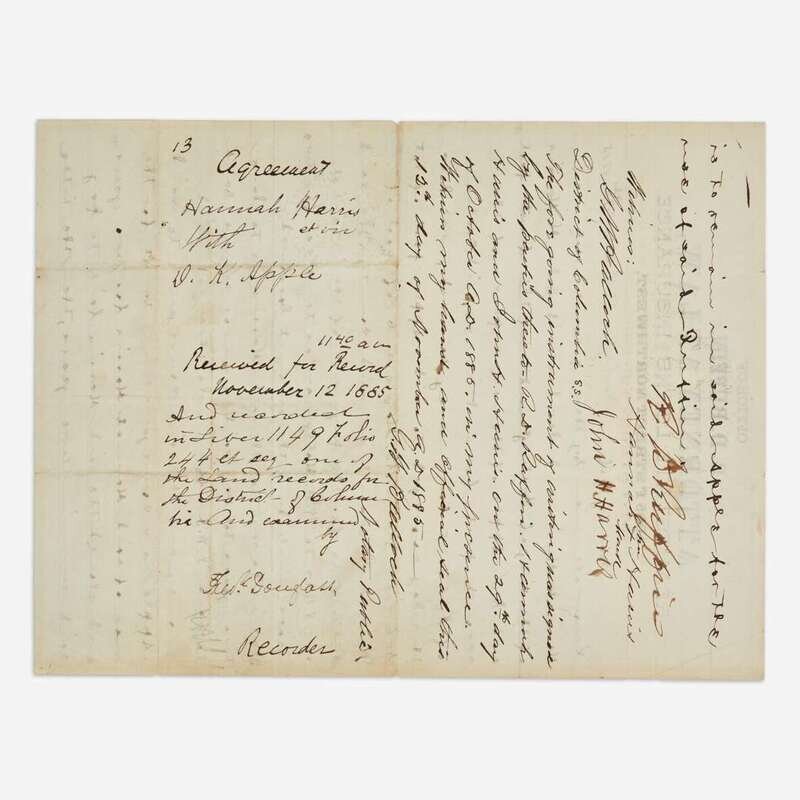 13
Agreement
Hannah Harris
et vir
With
D. K. Apple
11 40 am
Received for Record
November 12 1885
And recorded
in Liber 1149 Folio
244 et seq one of
the Land records for
the District of Colum
bia And examined
by
Fredk Douglass
Recorder
is to remain in said Apple for the
use of said Ruffin
R D Ruffin
Hannah Harris
her
mark
John H Harris
Witness:
District of Columbia ss.
The foregoing instrument of writing was signed
by the parties thereto R. D. Ruffin, Hannah
Harris and John H. Harris on the 29th day
of October A.D. 1885 in my presence.
Witness my hand and official seal this
12th day of November A.D 1885
Notary Public